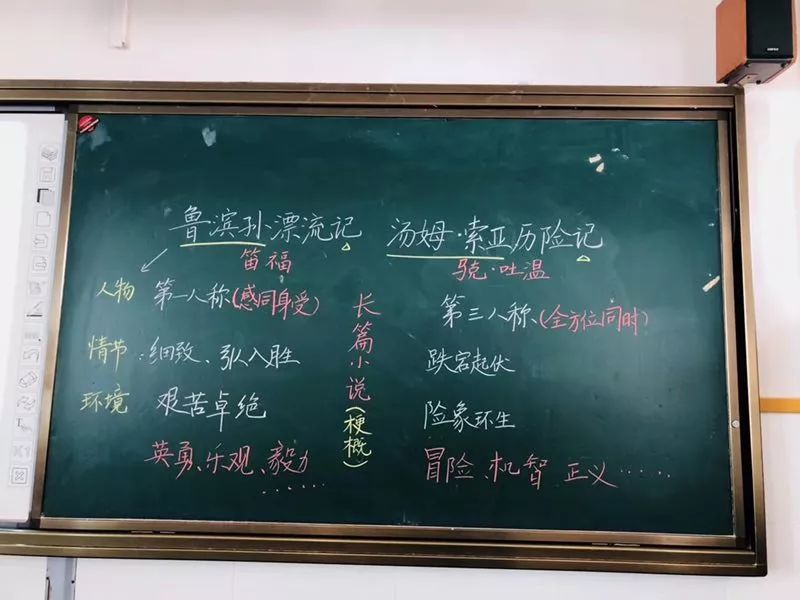 鲁滨孙漂流记 汤姆·索亚历险记
笛福 马克·吐温
人物 第一人称(感同身受) 第三人称(全方位同时)
情节 细致、引人入胜 跌宕起伏
环境 艰苦卓绝 险象环生
长篇小说(梗概)
英勇、乐观、毅力...... 冒险、机智 正义......